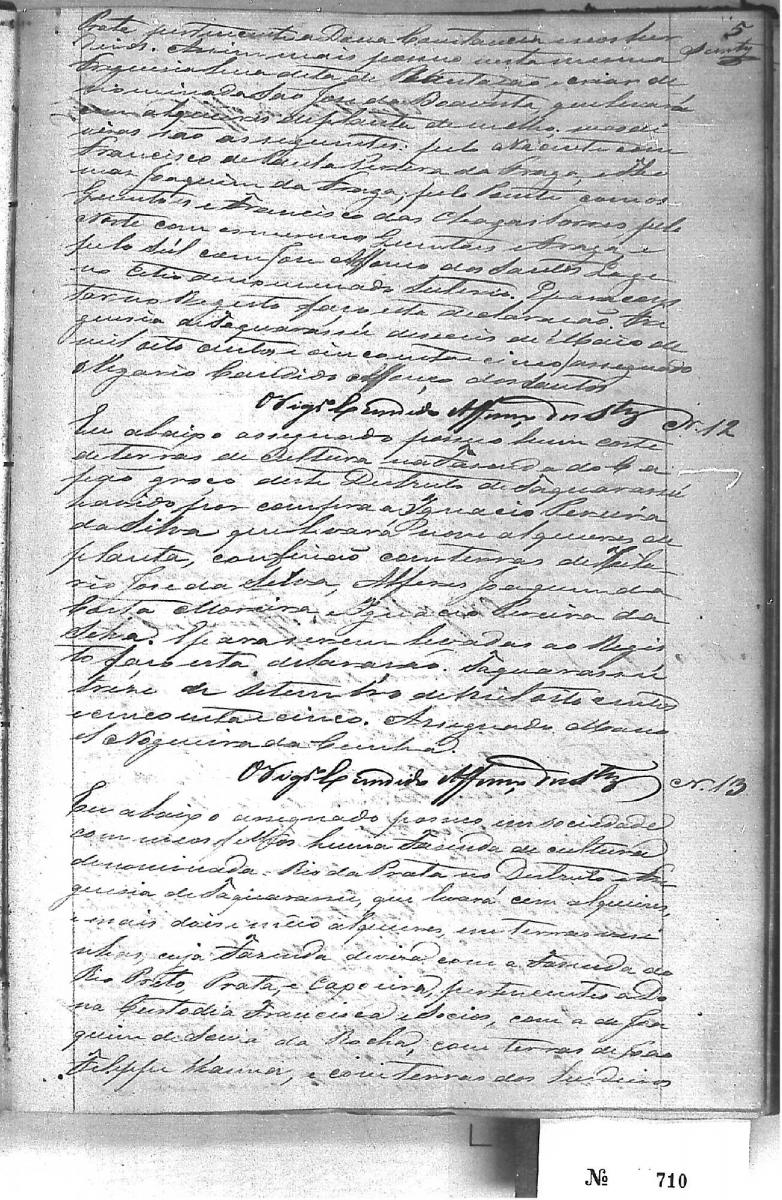 5
Santos
Prata pertencente a Dona Constancia e aos her
deiros. Assim mais possuo nesta mesma
Freguesia hua dita de Plantação e criar de
nominada São José da Boavista, que levará
cem alqueires de planta de milho. suas di
visas são as seguintes: pelo Nascente com
Francisco de Paula Pereira da Fraga, e The
mas Joaquim da Fraga, pelo Poente com os
Gentões e Francisco das Chagas Torres pelo
Norte com os mesmos Gentões e Fraga, e
pelo Sul com José Affonço dos Santos Lage
no Citio denominado
E para cons
tar no Registo faço esta declaração. Fre
guesia de Taquarassú deseseis de Maio de
mil oito centos e cincoenta e cinco / assegnado
o Vigario Candido Affonço dos Santos
O Vigr.o Candido Affonço dos Stos N. 12
Eu abaixo assegnado possuo hum corte
de terras de Cultura na Fasenda do Ca
pão groço deste Destrito de Taquarassú
havido por compra a Ignacio Pereira
da Silva que levará nove alqueires de
planta, confinão com terras de Hila
rio José da Silva, Alferes Joaquim da
Costa Moreira, e Ignacio Pereira da
Silva. E para serem levadas ao Regis
to faço esta declaração. Taquarassú
treze de Setembro de mil oito centos
e cincoenta e cinco. Assegnado Mano
el Nogueira da Cunha.
O Vigr.o Candido Affonço dos Stos N. 13
Eu abaixo assegnado possuo em sociedade
com meos filhos huma Fazenda de cultura
denominada - Rio da Prata no Destrito e Fre
guesia de Taquarassú, que levará cem alqueires,
e mais dois e meio alqueires, em terras vesi
nhas, cuja Fazenda divisa com a Fazenda do
Rio Preto, Prata, e Capoeira, pertencentes a Do
na Custodia Francisca e Socios, com a de Joa
quim de Souza da Rocha, com terras de João
Felippe Vianna, e com terras dos herdeiros
Nº 710